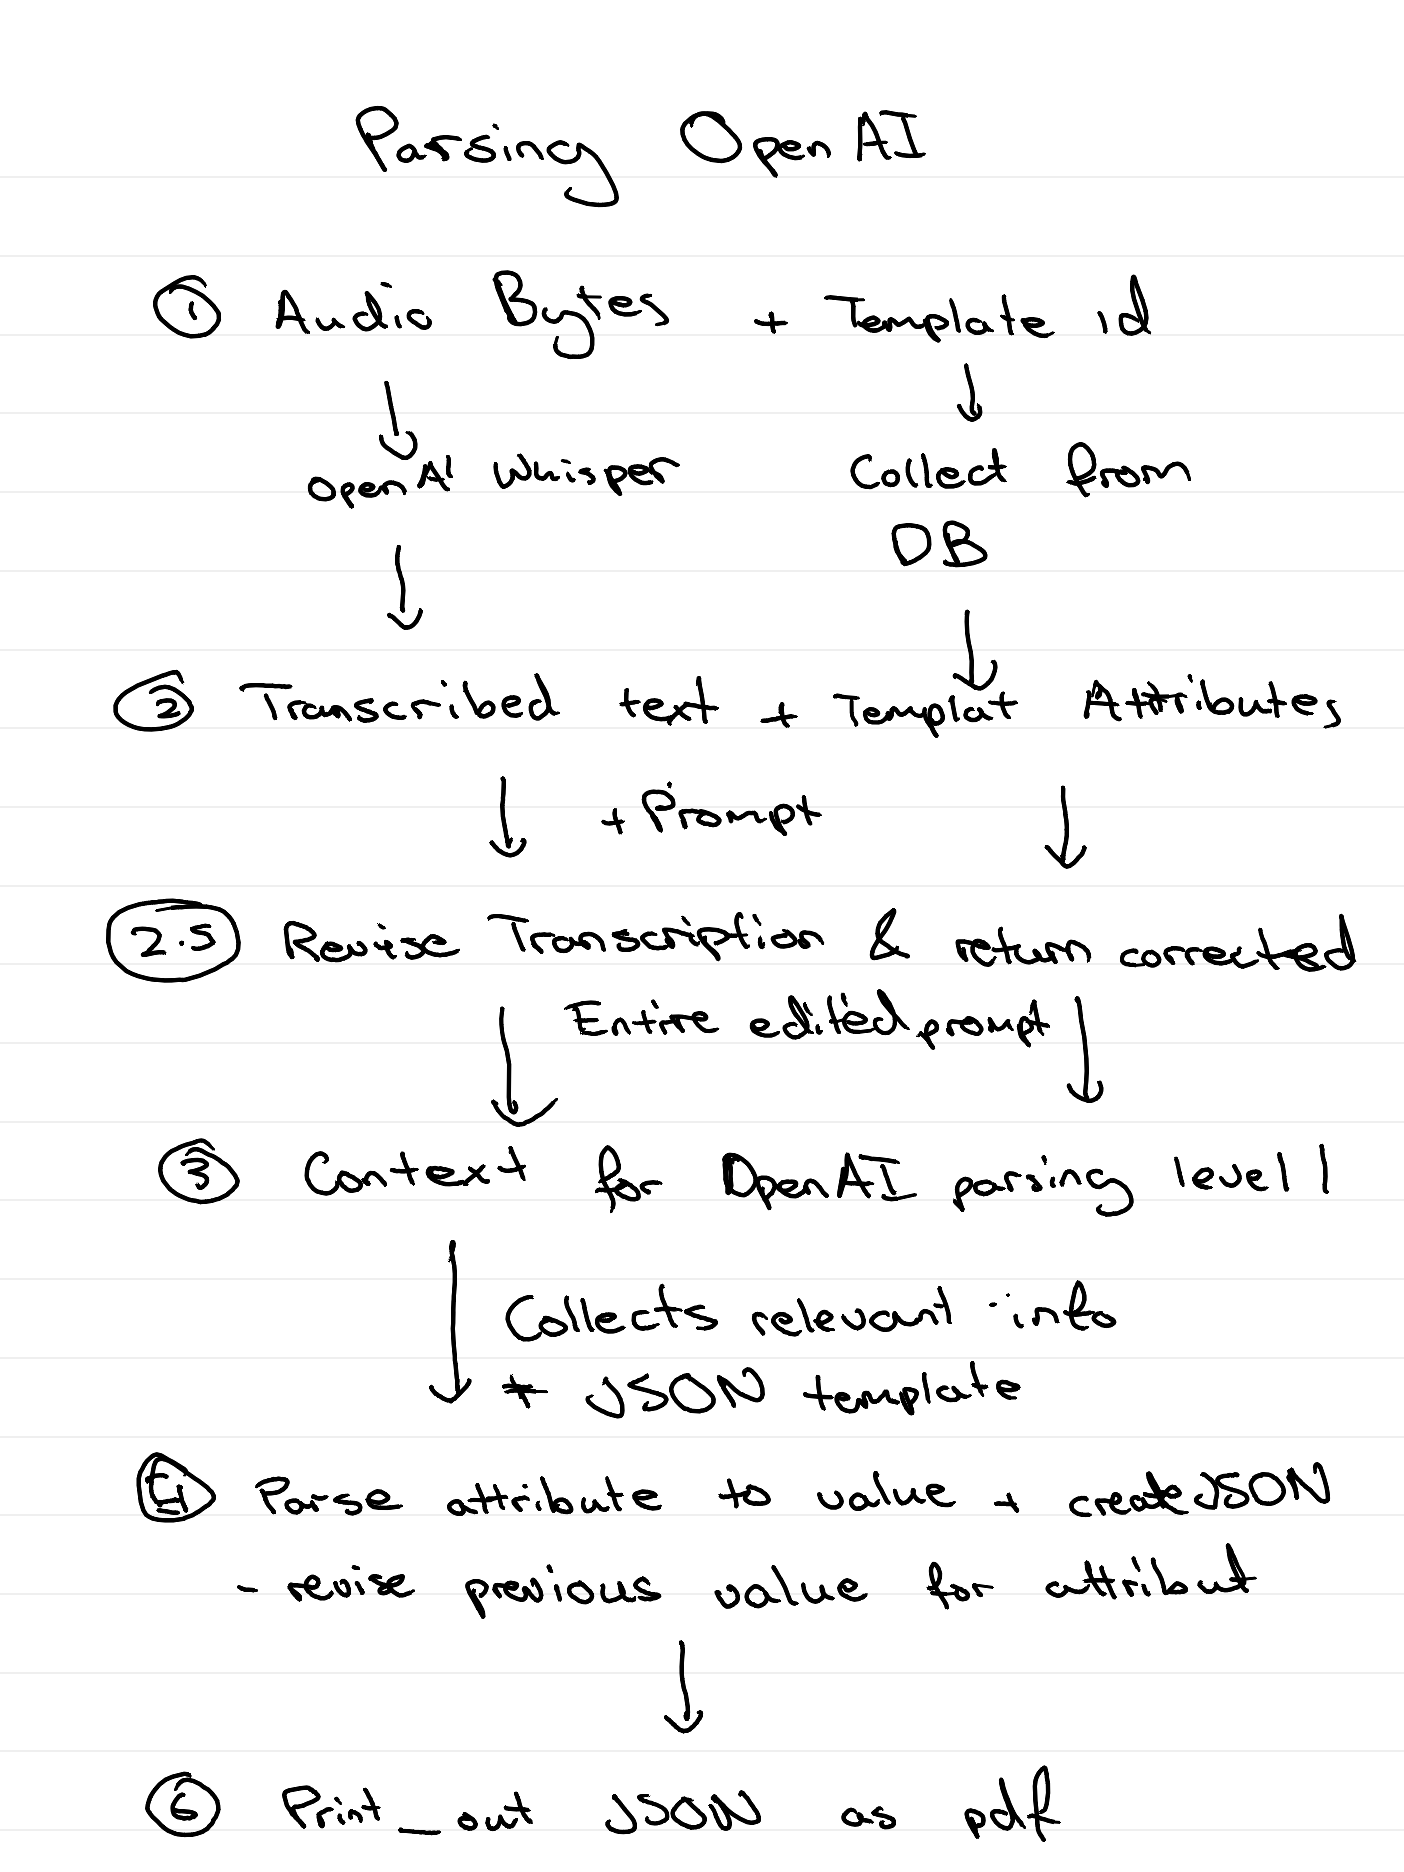 Parsing OpenAI
① Audio Bytes + Template id
↓ ↓
OpenAI Whisper Collect from
DB
↓ ↓
② Transcribed text + Templat Attributes
↓ + Prompt ↓
2.5 Revise Transcription & return corrected
↓ Entire edited prompt ↓
③ Context for OpenAI parsing level 1
↓ Collects relevant info
* JSON template
④ Parse attribute to value + create JSON
- revise previous value for attribut
↓
⑥ Print_out JSON as pdf